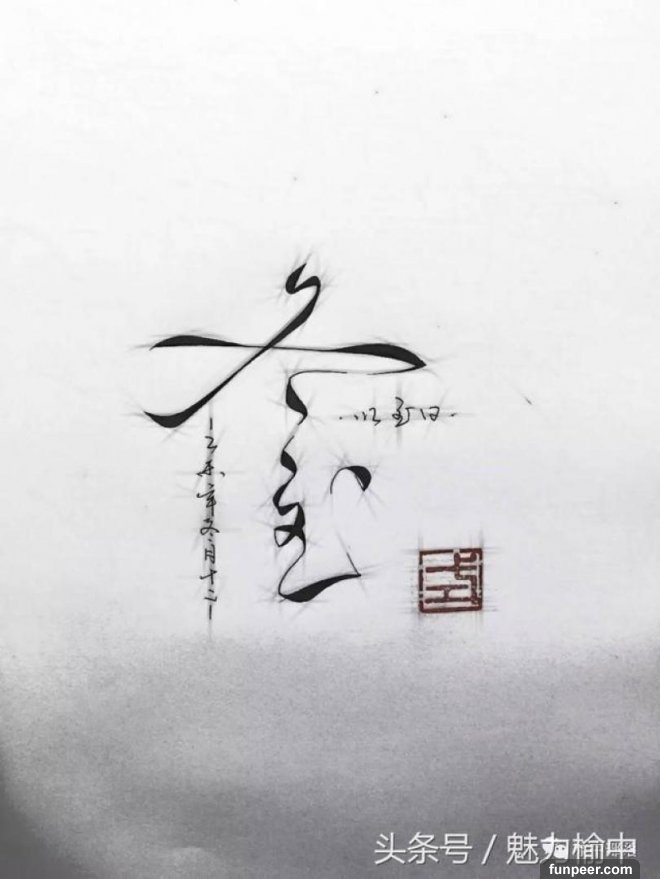 冬至
至日
乙未年冬月十二
头条号 / 魅力榆中
funpeer.com